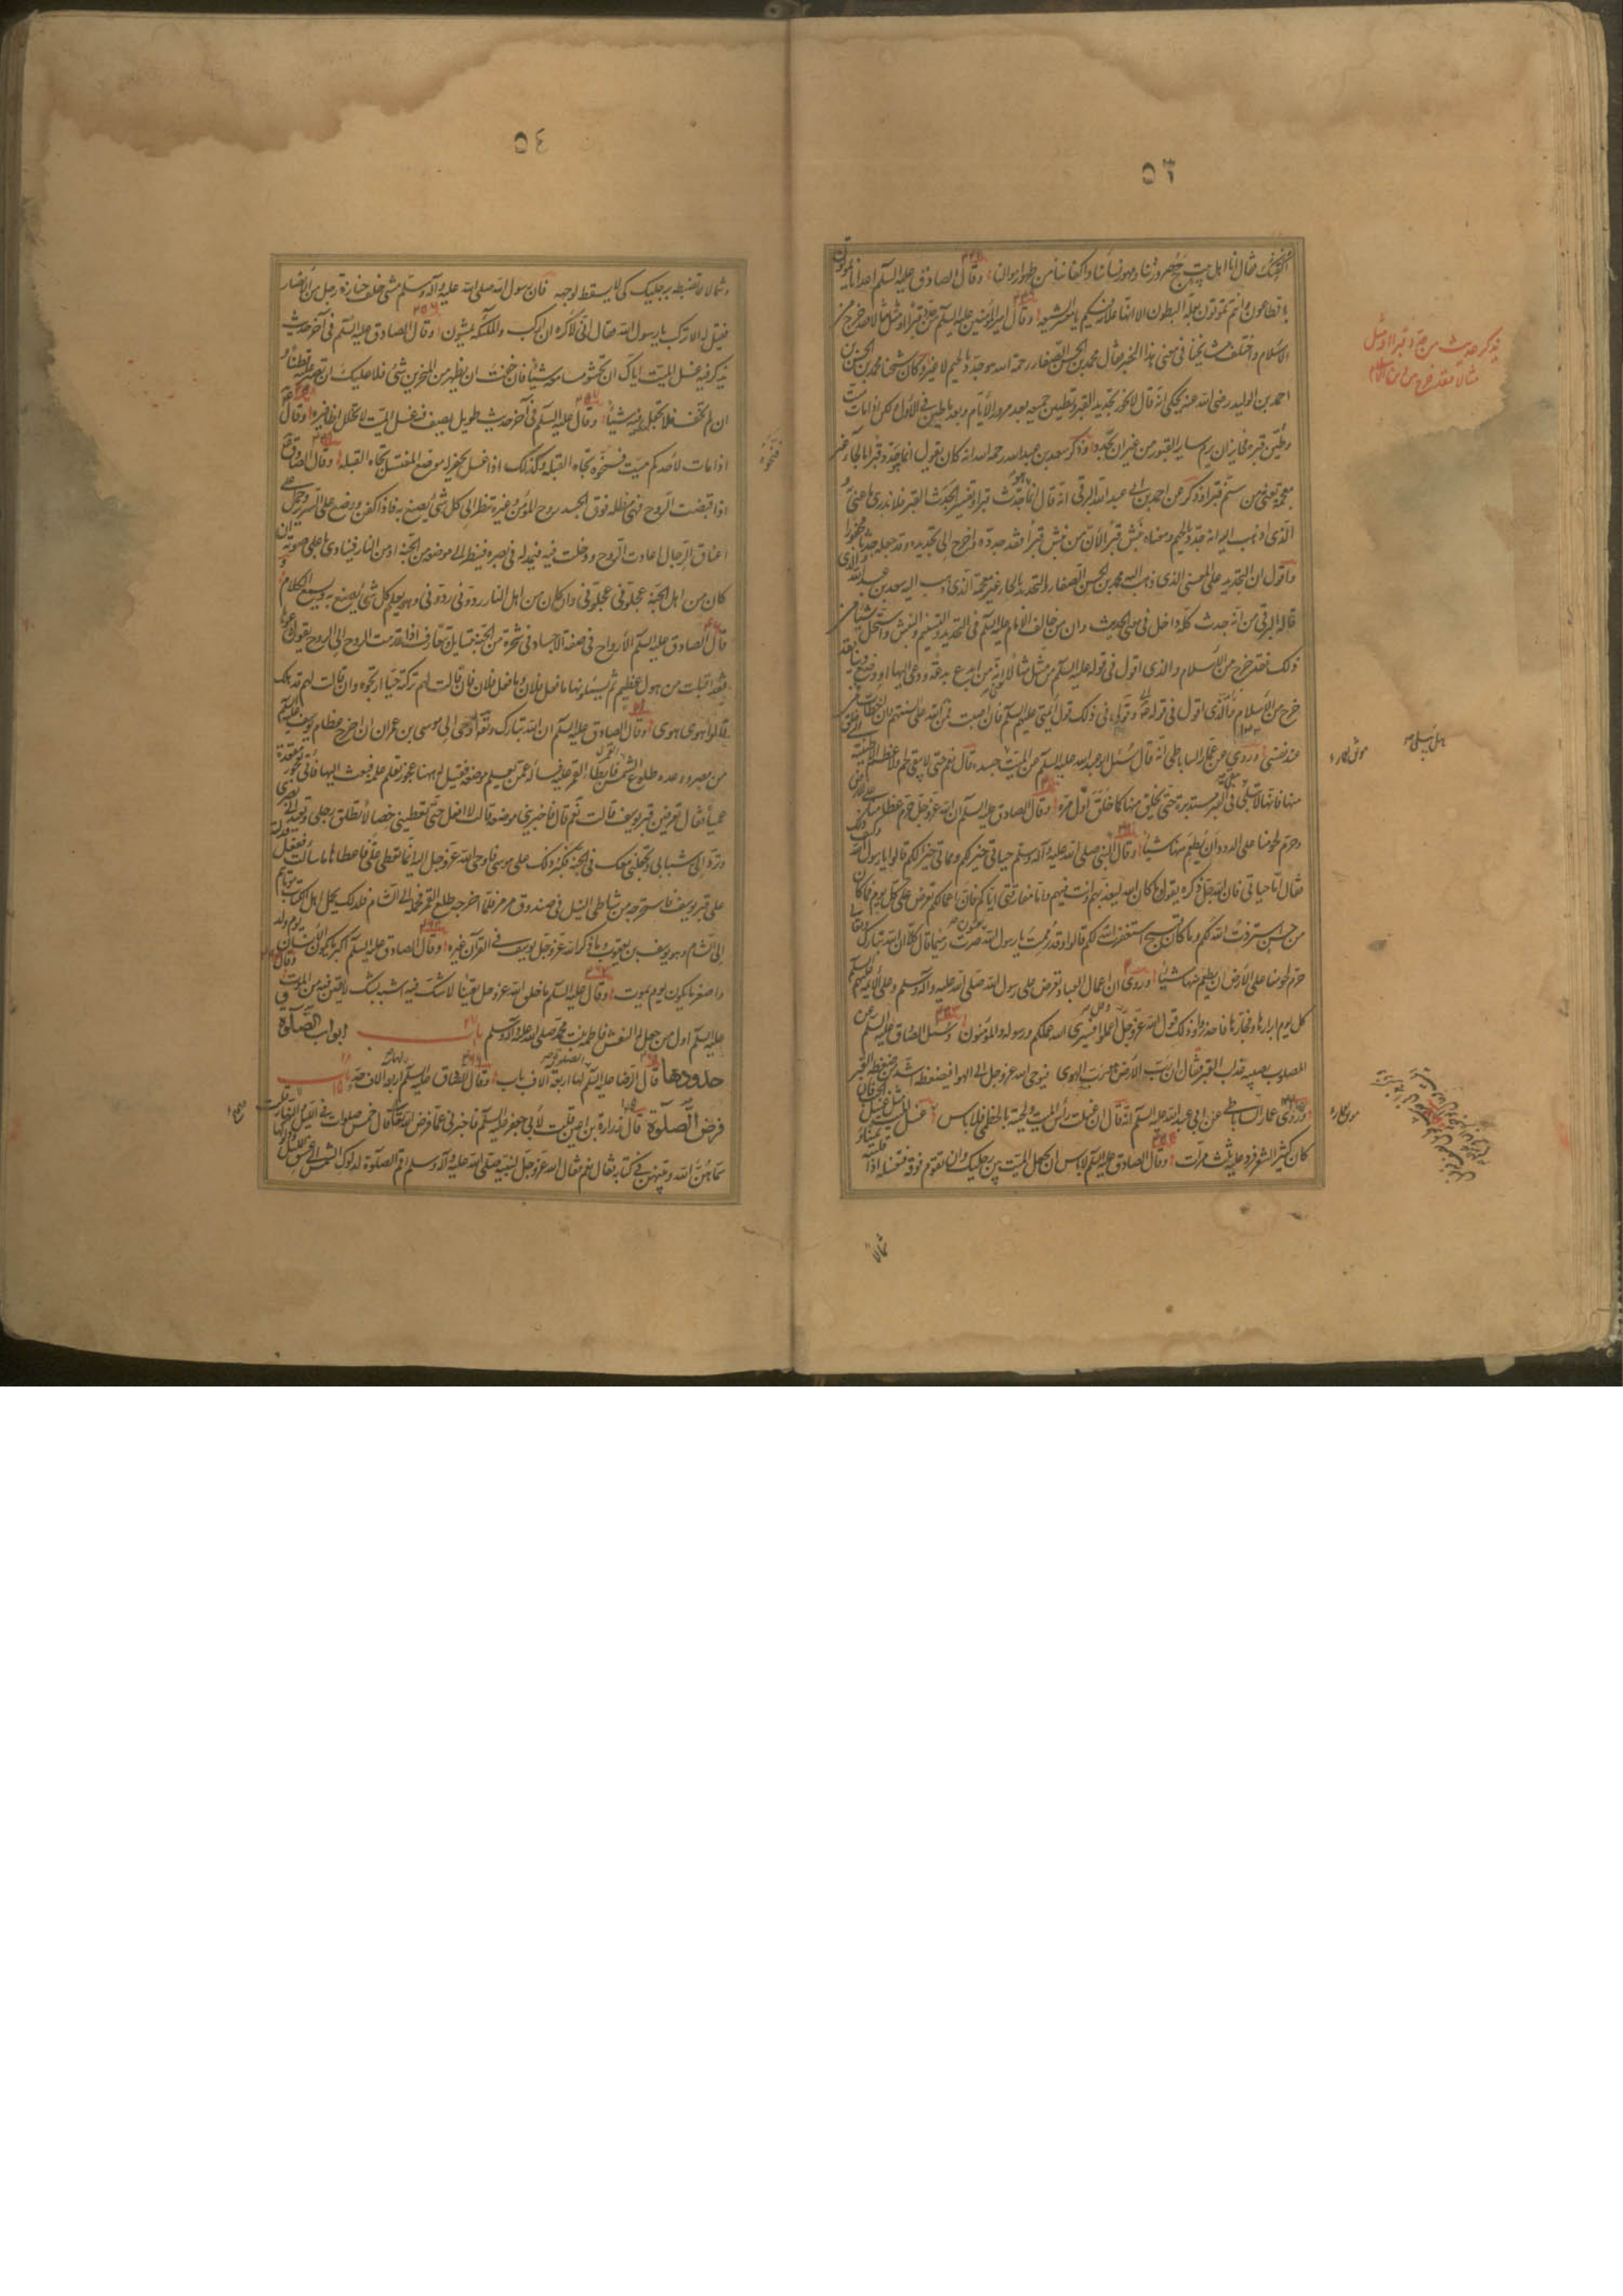 ٥٣
كفنك فقال انا اهل بيت حج صرورتنا ومهور نسائنا واكفاننا من طهور اموالنا وقال الصادق عليه السلم اعداؤنا يموتون
بالطاعون وانتم تموتون بعلة البطون الا انها علامة فيكم يا معشر الشيعه وقال امير المؤمنين عليه السلم من جدد قبرا او مثل مثالا فقد خرج من
الاسلام واختلف مشايخنا فى معنى هذا الخبر فقال محمد بن الحسن الصفار رحمه الله هو جدد بالجيم لا غير وكان شيخنا محمد بن الحسن بن
احمد بن الوليد رضى الله عنه يحكى انه قال لا يجوز تجديد القبر وتطيين جميعه بعد مرور الايام وبعد ما طين فى الاول ولكن اذا مات ميت
وطين قبره فجايز ان يرم ساير القبور من غير ان يجدد وذكر سعد بن عبد الله رحمه الله انه كان يقول انما هو من حدد قبرا بالحاء غير
معجمة يعنى من سنم قبرا وذكر عن احمد بن ابى عبد الله البرقى انه قال انما هو من جدث قبرا وتفسير الجدث القبر فلا ندرى ما عنى به و
الذى اذهب اليه انه جدد بالجيم ومعناه نبش قبرا لان من نبش قبرا فقد جدده واحوج الى تجديده وقد جعله جدثا محفورا
واقول ان التجديد على المعنى الذى ذهب اليه محمد بن الحسن الصفار والتحديد بالحاء غير معجمة الذى ذهب اليه سعد بن عبد الله والذى
قاله البرقى من انه جدث كله داخل فى معنى الحديث وان من خالف الامام عليه السلم فى التجديد والتسنيم والنبش واستحل شيئا من
ذلك فقد خرج من الاسلام والذى اقول فى قوله عليه السلم من مثل مثالا انه من ابدع بدعة ودعى اليها او وضع دينا فقد
خرج من الاسلام والذى اقول فى قوله وقولى فى ذلك قول ائمتى عليهم السلم فان اصبت فمن الله على السنتهم وان اخطأت فمن
عند نفسى وروى عن عمار الساباطى انه قال سئل ابو عبد الله عليه السلم عن الميت هل يبلى جسده قال نعم حتى لا يبقى لحم ولا عظم الا طينته التى خلق
منها فانها لا تبلى تبقى فى القبر مستديرة حتى يخلق منها كما خلق اول مرة وقال الصادق عليه السلم ان الله عز وجل حرم عظامنا على الارض
وحرم لحومنا على الدود ان يطعم منها شيئا وقال النبى صلى الله عليه وآله وسلم حياتى خير لكم ومماتى خير لكم قالوا يا رسول الله وكيف ذلك
فقال اما حياتى فان الله جل ذكره يقول وما كان الله ليعذبهم وانت فيهم واما مفارقتى اياكم فان اعمالكم تعرض على كل يوم فما كان
من حسن استزدت الله لكم وما كان قبيح استغفرت الله لكم قالوا وقد رممت يا رسول الله يعنون صرت رميما قال كلا ان الله تبارك وتعالى
حرم لحومنا على الارض ان يطعم منها شيئا وروى ان اعمال العباد تعرض على رسول الله صلى الله عليه وآله وسلم وعلى الائمة عليهم السلم
كل يوم ابرارها وفجارها فاحذروا وذلك قول الله عز وجل وقل اعملوا فسيرى الله عملكم ورسوله والمؤمنون وسئل الصادق عليه السلم عن
المصلوب يصيبه عذاب القبر فقال ان رب الارض هو رب الهوى فيوحى الله عز وجل الى الهوا فيضغطه اشد من ضغطة القبر
وروى عمار الساباطى عن ابى عبد الله عليه السلم انه قال ان غسلت رأس الميت ولحيته بالخطمى فلا باس
كان كثير الشعر فرد عليه ثلث مرات وقال الصادق عليه السلم لا باس ان تجعل الميت بين رجليك وان تقوم فوقه فتغسله اذا قلبته
شمالا
٥٤
وشمالا تضبطه برجليك كى لا يسقط لوجهه فان رسول الله صلى الله عليه وآله وسلم مشى خلف جنازة رجل من الانصار
فقيل له الا تركب يا رسول الله فقال انى لاكره ان اركب والملئكة يمشون وقال الصادق عليه السلم فى آخر حديث
يذكر فيه غسل الميت اياك ان تحشو مسامعه شيئا فان خفت ان يظهر من المنخرين شئ فلا عليك ان تصير ثم قطنا و
ان لم تخف فلا تجعل فيه شيئا وقال عليه السلم فى آخر حديث طويل يصف فيه غسل الميت لا تخلل اظافيره وقال
اذا مات لاحدكم ميت فسجوه تجاه القبلة وكذلك اذا غسل يحفر له موضع المغتسل تجاه القبلة وقال الصادق
اذا قبضت الروح فهى مظلة فوق الجسد روح المؤمن وغيره تنظر الى كل شئ يصنع به فاذا كفن ووضع على السرير وحمل على
اعناق الرجال عادت الروح ودخلت فيه فيمد له فى بصره فينظر الى موضعه من الجنة او من النار فينادى باعلى صوته ان
كان من اهل الجنة عجلونى عجلونى وان كان من اهل النار ردونى ردونى وهو يعلم كل شئ يصنع به ويسمع الكلام
قال الصادق عليه السلم الارواح فى صفة الاجساد فى شجرة من الجنة تتسايل وتتعارف فاذا قدمت الروح الى الروح يقول دعوها
فقد اقبلت من هول عظيم ثم يسئلونها ما فعل فلان وما فعل فلان فان قالت لهم تركته حيا ارتجوه وان قالت لهم قد هلك
قالوا هوى هوى وقال الصادق عليه السلم ان الله تبارك وتعالى اوحى الى موسى بن عمران ان اخرج عظام يوسف عليه السلم
من مصر ووعده طلوع القمر فابطأ القمر عليه فسأل عمن يعلم موضعه فقيل له ههنا عجوز تعلم علمه فبعث اليها فاتى بعجوز مقعدة
عميا فقال تعرفين قبر يوسف قالت نعم قال فاخبرينى بموضعه قالت لا افعل حتى تعطينى خصالا تطلق رجلى وتعيد الى بصرى
وترد الى شبابى وتجعلنى معك فى الجنة فكبر ذلك على موسى فاوحى الله عز وجل اليه انما تعطى على فاعطها ما سألت ففعل فدلته
على قبر يوسف فاستخرجه من شاطئ النيل فى صندوق مرمر فلما اخرجه طلع القمر فحمله الى الشام فلذلك يحمل اهل الكتاب موتاهم
الى الشام وهو يوسف بن يعقوب وما ذكر الله عز وجل يوسف فى القرآن غيره وقال الصادق عليه السلم اكبر ما يكون الانسان يوم ولد
واصغر ما يكون يوم يموت وقال عليه السلم ما خلق الله عز وجل يقينا لا شك فيه اشبه بشك لا يقين فيه من الموت وقال
عليه السلم اول من جعل له النعش فاطمة بنت محمد صلى الله عليه وآله وسلم باب ابواب الصلوة
حدودها قال الرضا عليه السلم الصلوة لها اربعة آلاف باب وقال الصادق عليه السلم لها اربعة آلاف حد باب
فرض الصلوة قال زرارة بن اعين قلت لابى جعفر عليه السلم فاخبرنى عما فرض الله تعالى من الصلوة قال خمس صلوات فى الليل والنهار قلت
سماهن الله وبينهن فى كتابه فقال نعم فقال الله عز وجل لنبيه صلى الله عليه وآله وسلم اقم الصلوة لدلوك الشمس الى غسق الليل